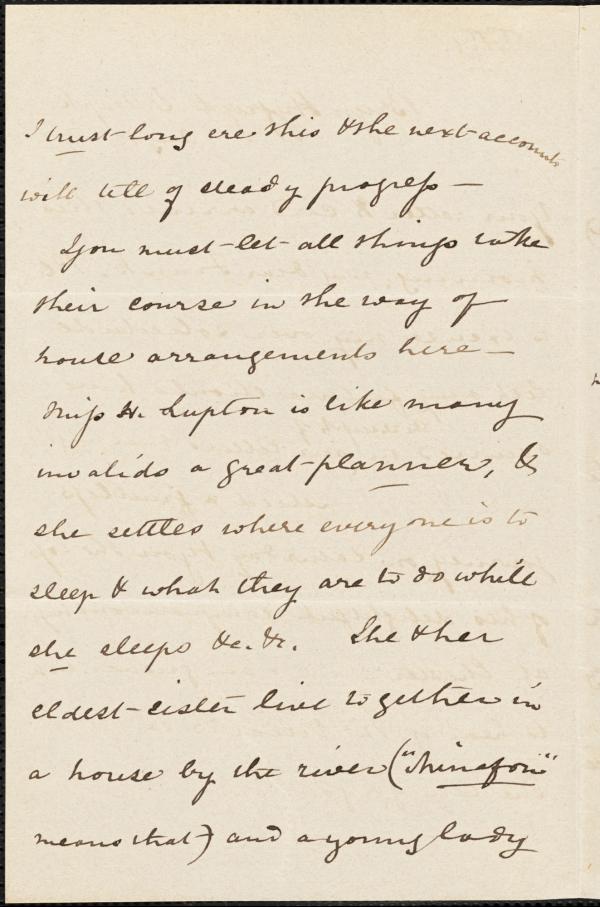 I trust long ere this & the next accounts
will tell of steady progress —
You must let all things take
their course in the way of
house arrangements here —
Miss H. Lupton is like many
invalids a great planner, &
she settles where everyone is to
sleep & what they are to do while
she sleeps &c. &c. She & her
eldest sister live together in
a house by the river (
means that) and a young lady